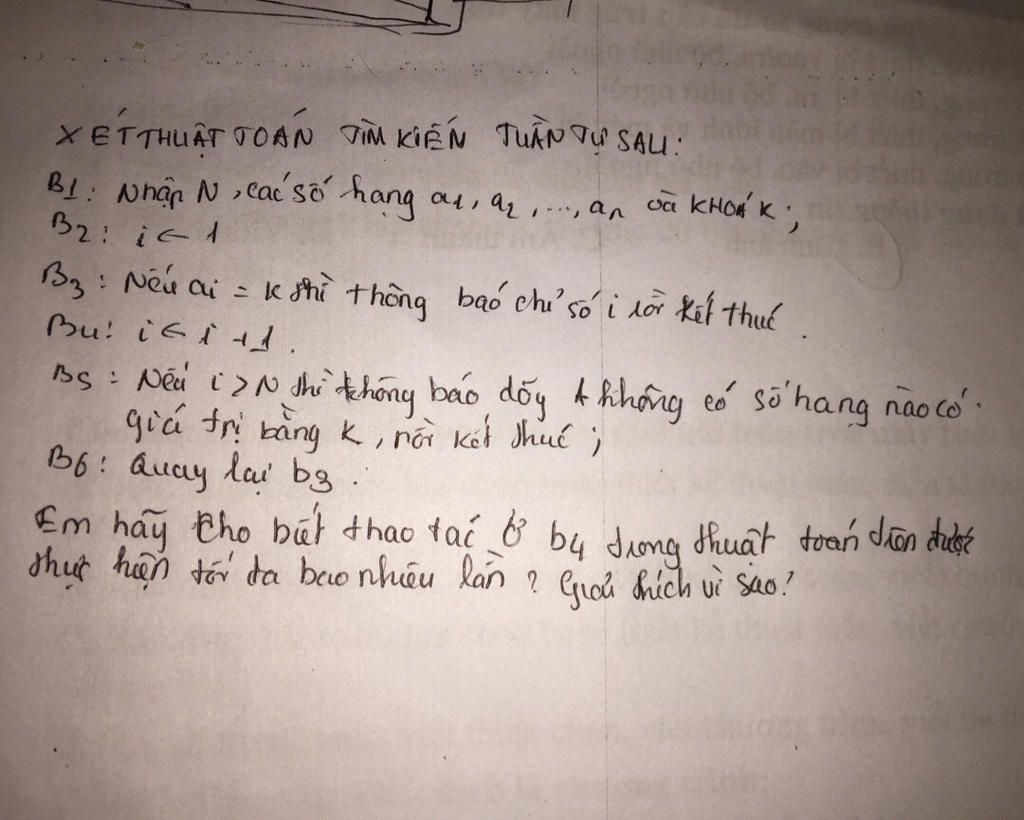 XÉT THUẬT TOÁN TÌM KIẾN TUẦN TỰ SAU:
B1: Nhập N, các số hạng a1, a2, ..., an và KHOÁ K;
B2: i ← 1
B3: Nếu ai = k thì thông báo chỉ số i rồi kết thúc.
B4: i ← i + 1.
B5: Nếu i > N thì thông báo dãy A không có số hạng nào có
giá trị bằng k, rồi kết thúc;
B6: Quay lại b3.
Em hãy cho biết thao tác ở b4 trong thuật toán trên được
thực hiện tối đa bao nhiêu lần? Giải thích vì sao?